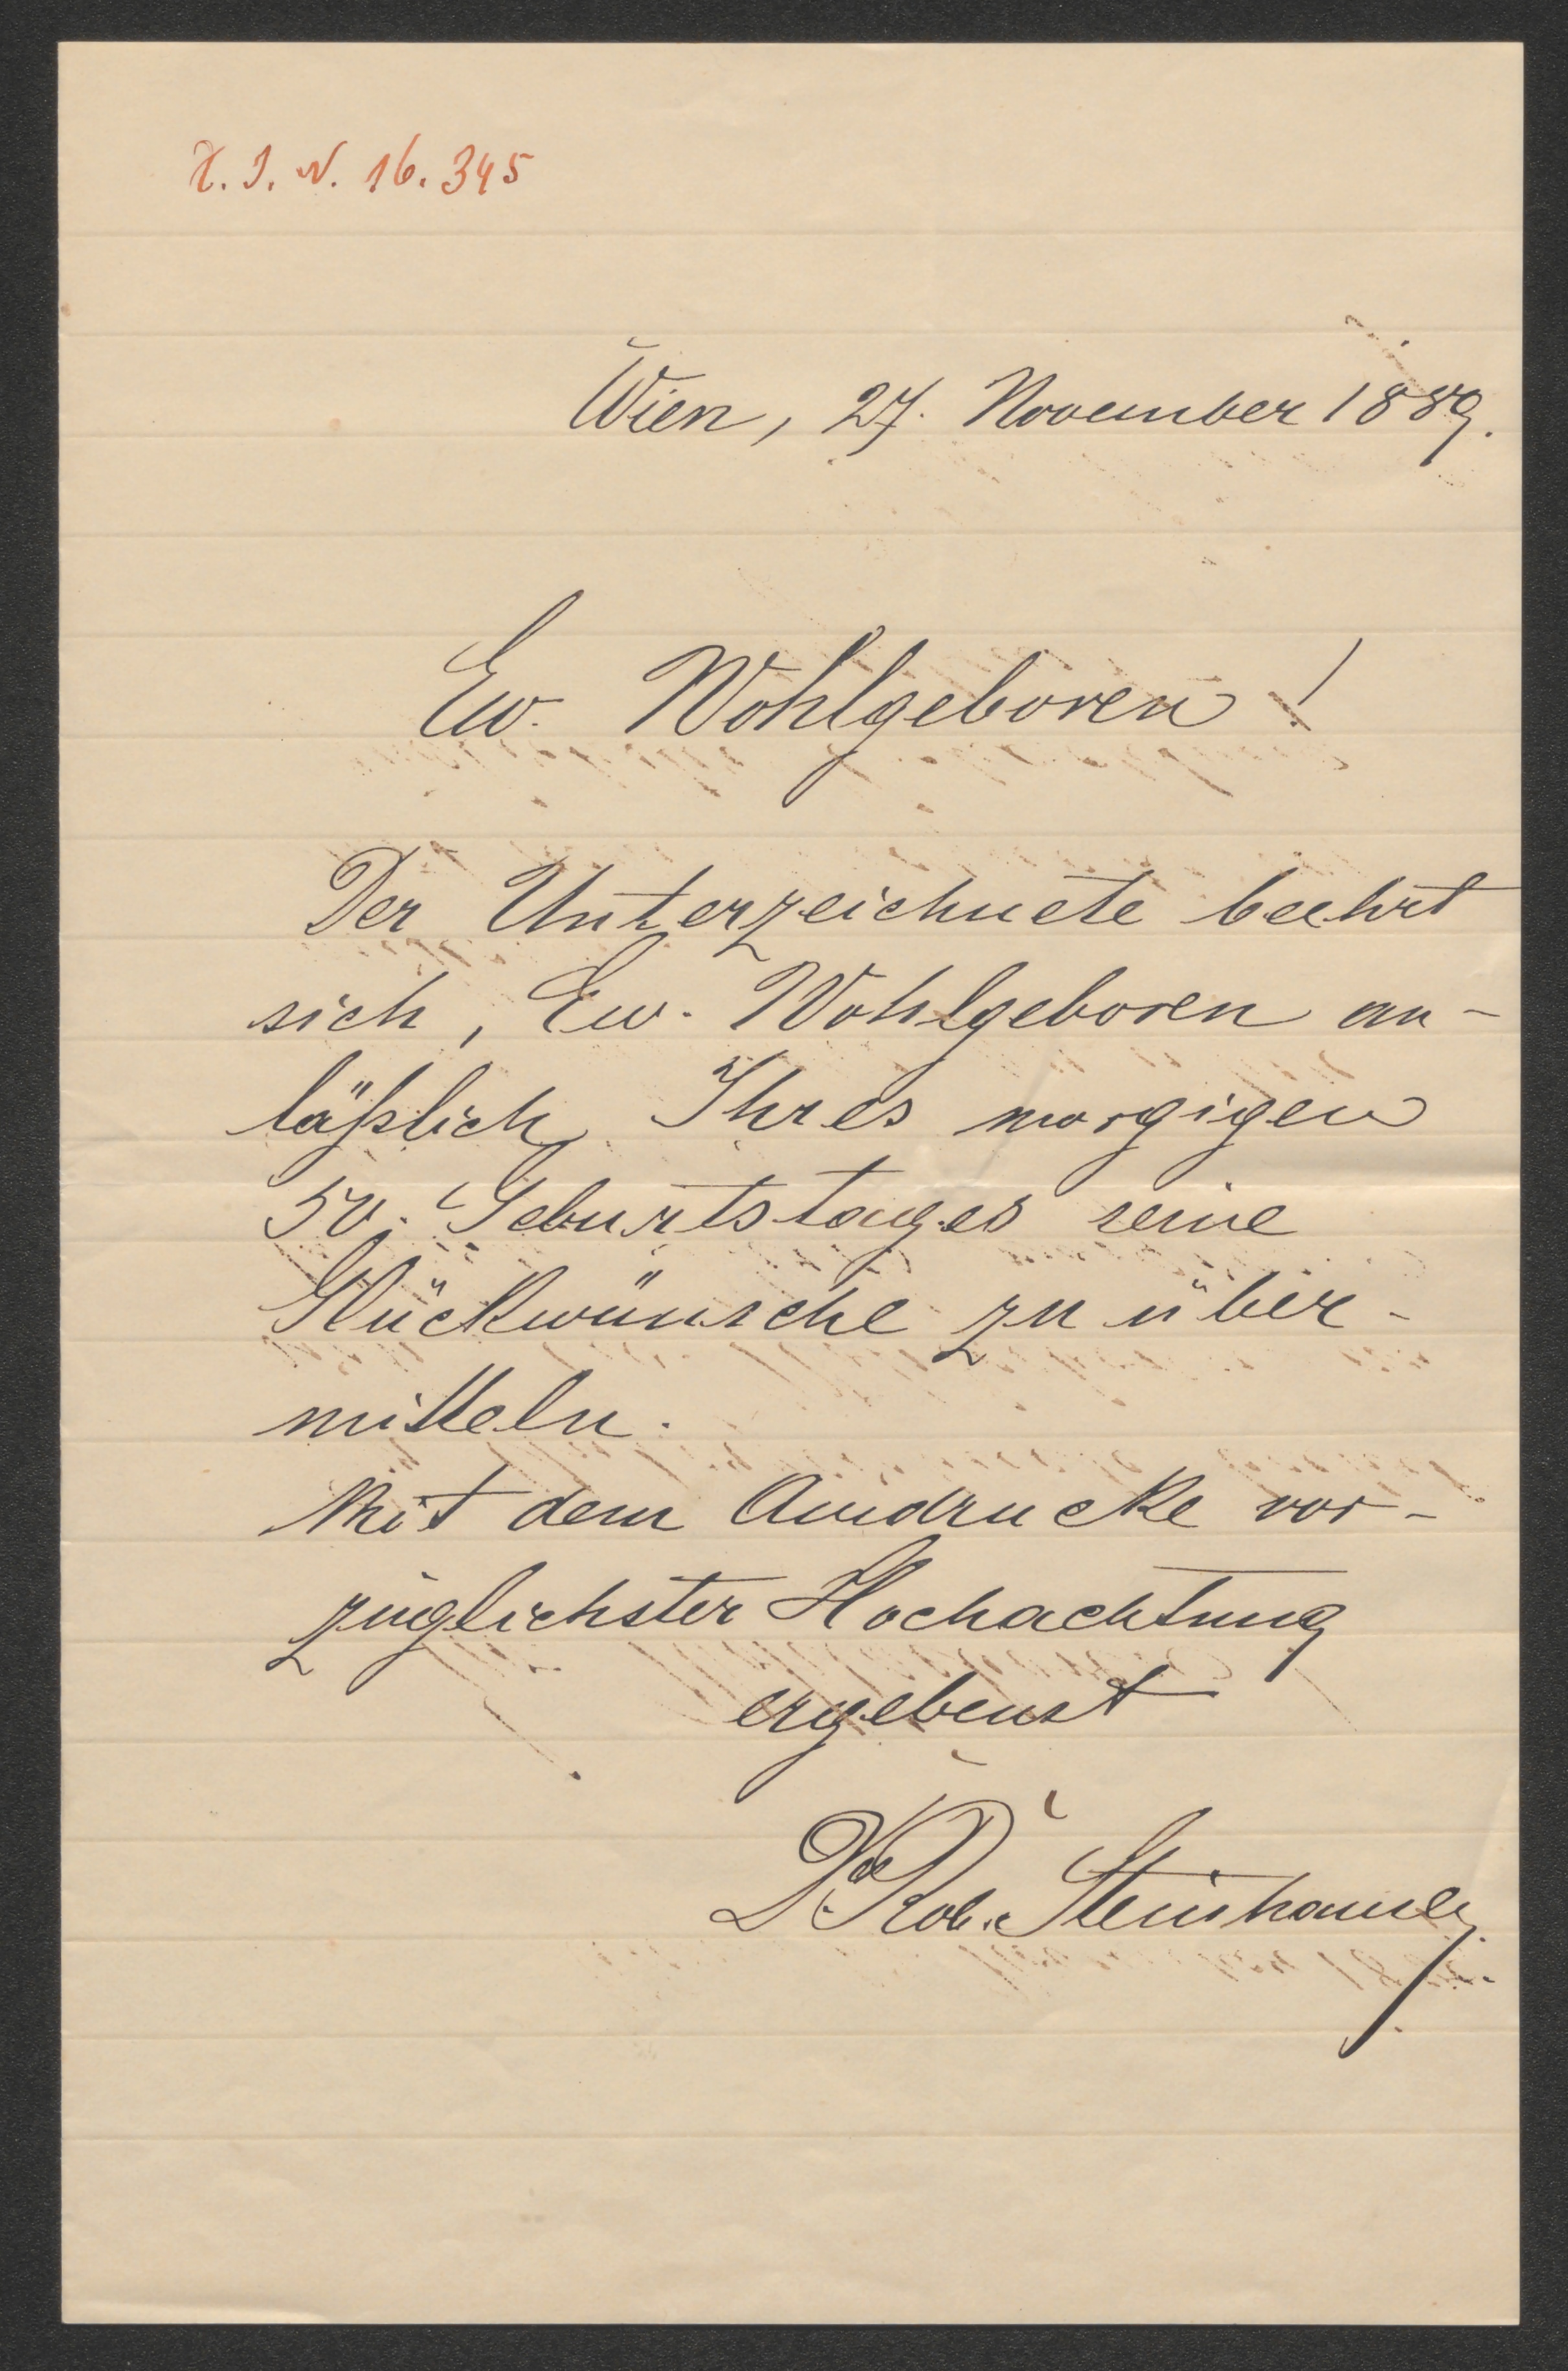 H. I. N. 16.345
Wien, 27. November 1889.
Ew. Wohlgeboren!
Der Unterzeichnete beehrt
sich, Ew. Wohlgeboren an-
läßlich Ihres morgigen
50. Geburtstages seine
Glückwünsche zu über-
mitteln.
Mit dem Ausdrucke vor-
züglichster Hochachtung
ergebenst
Dr. Rob. Steinhauser